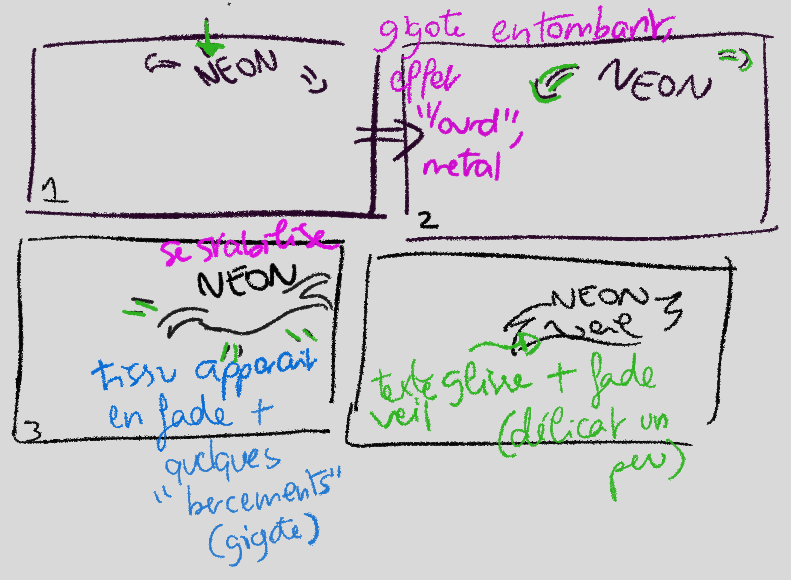 NEON
1
gigote en tombant,
effet
"lourd",
metal
NEON
2
se stabilise
NEON
tissu apparait
en fade +
quelques
"bercements"
(gigote)
3
NEON
veil
texte glisse + fade
veil
(délicat un
peu)